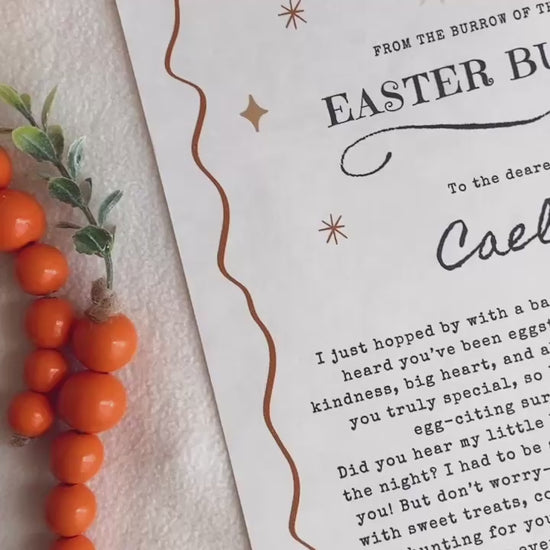 FROM THE BURROW OF
EASTER
To the
I just hopped by with a
heard you've been
kindness, big heart, and
you truly special, so
egg-citing
Did you hear my little
the night? I had to be
you! But don't worry—
with sweet treats,
hunting for